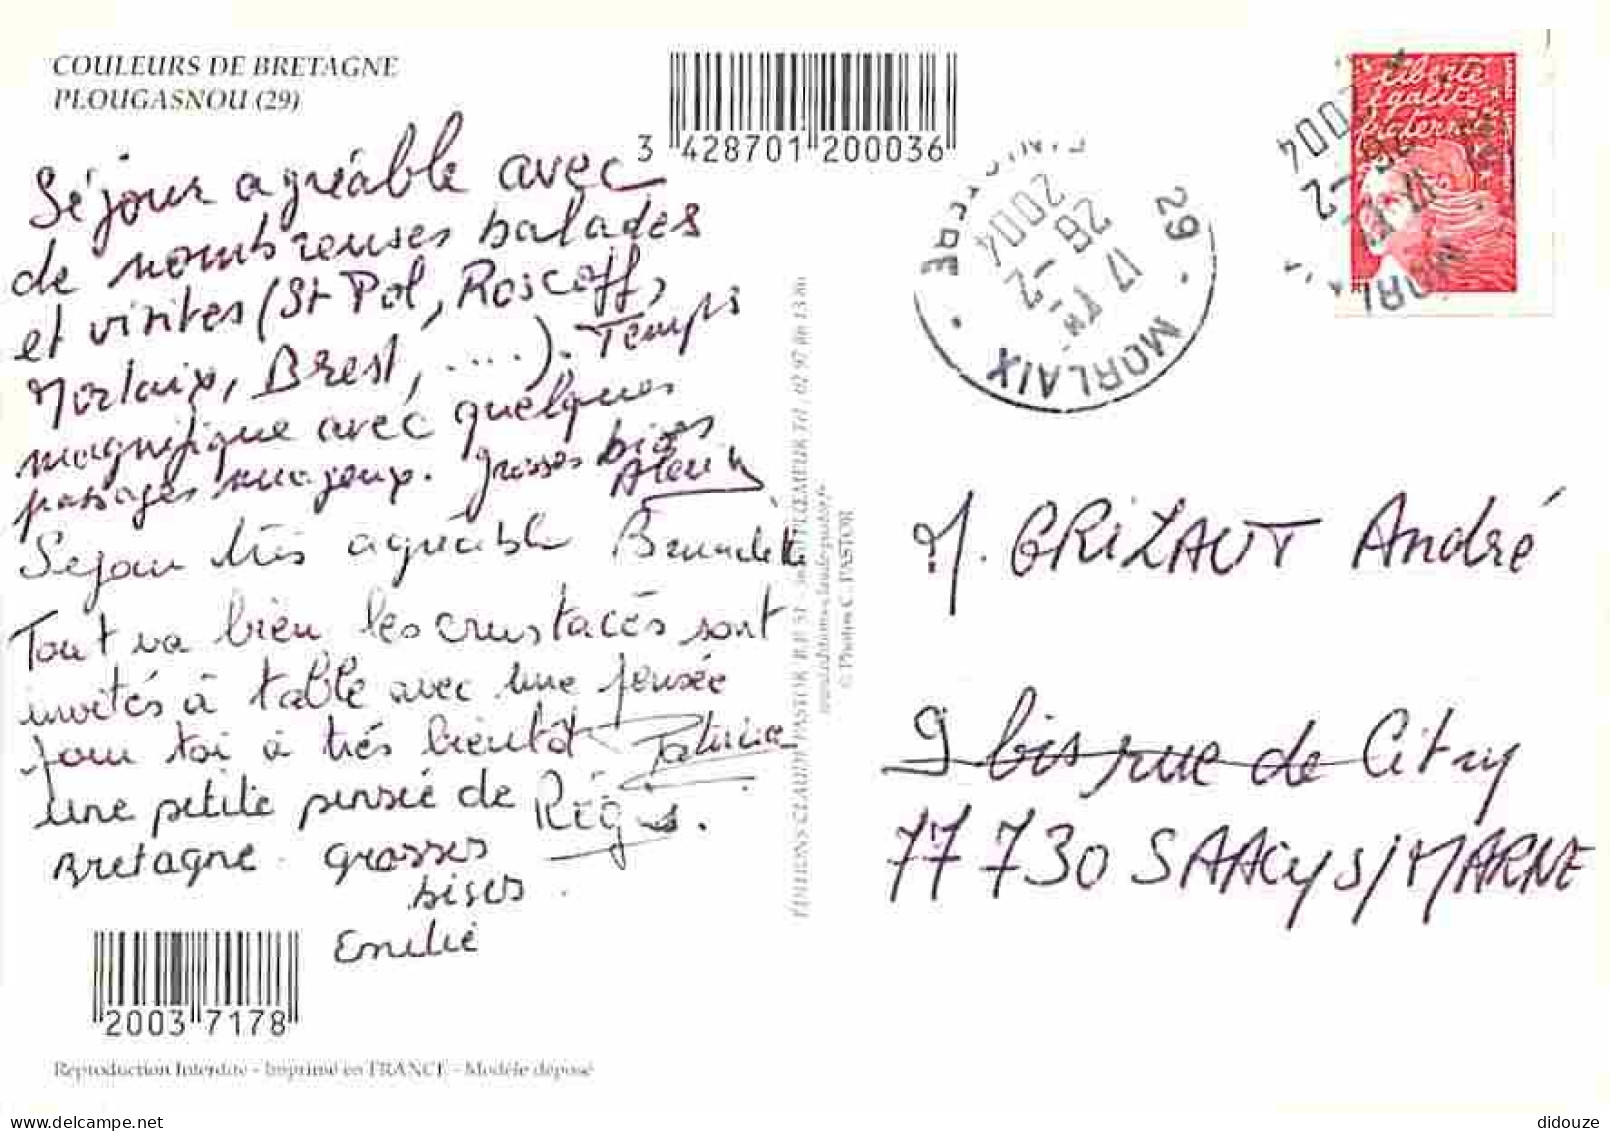 COULEURS DE BRETAGNE
PLOUGASNOU (29)
3 428701 200036
Séjour agréable avec
de nombreuses balades
et visites (St Pol, Roscoff,
Morlaix, Brest, ....). Temps
magnifique avec quelques
passages nuageux. Grosses bises
Alain
Séjour très agréable Bernadette
Tout va bien les crustacés sont
invités à table avec une pensée
pour toi à très bientôt Patricia
une petite pensée de Régis.
Bretagne. grosses
bises.
Emilie
2003 7178
Reproduction Interdite - Imprimé en FRANCE - Modèle déposé
ÉDITIONS CLAUDE PASTOR B.P. 51
© Photos C. PASTOR
29 · MORLAIX
17 H
26 -2
2004
liberté
égalité
fraternité
MORLAIX
2004
M. GRIZAUT André
9 bis rue de Citry
77 730 SAACYS/MARNE
didouze